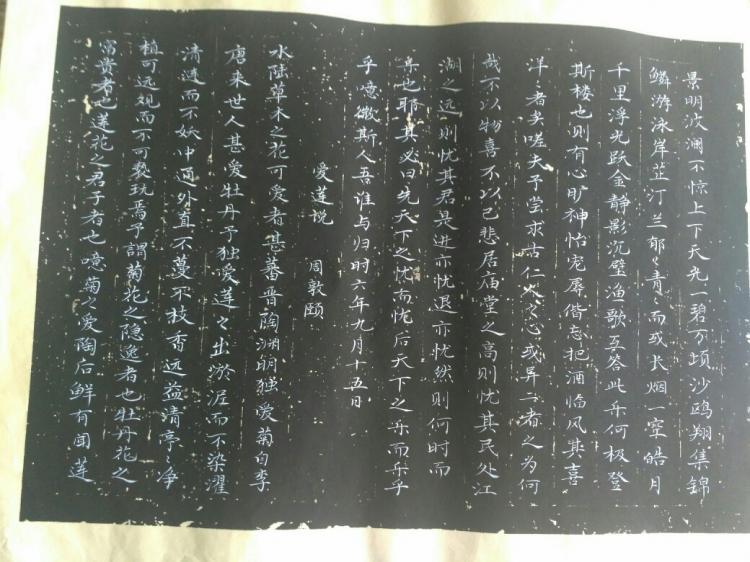 景明波澜不惊上下天光一碧万顷沙鸥翔集锦
鳞游泳岸芷汀兰郁々青々而或长烟一空皓月
千里浮光跃金静影沉璧渔歌互答此乐何极登
斯楼也则有心旷神怡宠辱偕忘把酒临风其喜
洋者矣嗟夫予尝求古仁人之心或异二者之为何
哉不以物喜不以己悲居庙堂之高则忧其民处江
湖之远则忧其君是进亦忧退亦忧然则何时而
乐也耶其必曰先天下之忧而忧后天下之乐而乐乎
乎噫微斯人吾谁与归时六年九月十五日
爱莲说 周敦颐
水陆草木之花可爱者甚蕃晋陶渊明独爱菊自李
唐来世人甚爱牡丹予独爱莲之出淤泥而不染濯
清涟而不妖中通外直不蔓不枝香远益清亭々净
植可远观而不可亵玩焉予謂菊花之隐逸者也牡丹花之
富贵者也莲花之君子者也噫菊之爱陶后鲜有闻莲